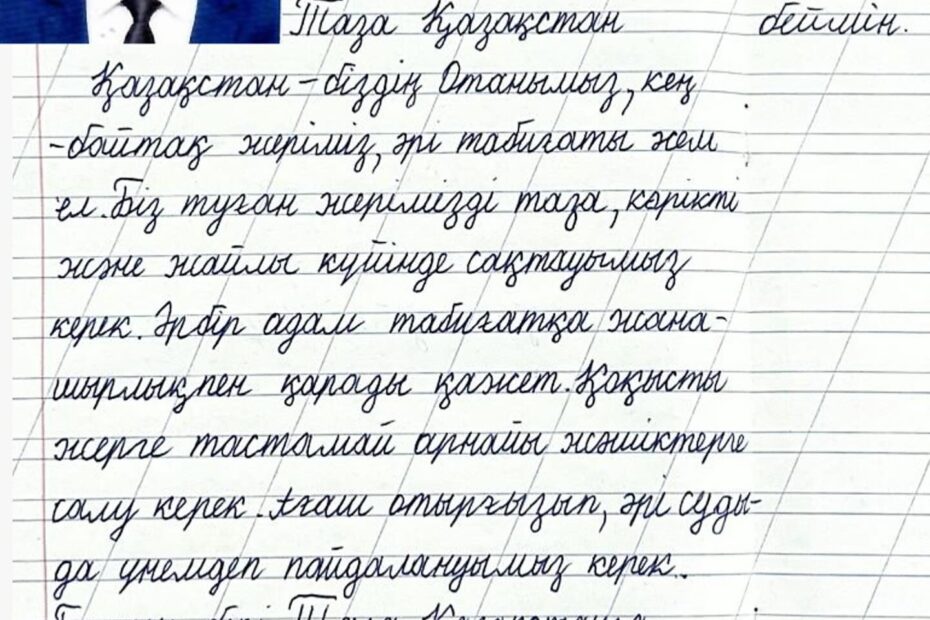 Таза Қазақстан бейлін.
Қазақстан – біздің Отанымыз, кең
-байтақ жеріміз, әрі табиғаты жем
ел. Біз туған жерімізді таза, көрікті
және жайлы күйінде сақтауымыз
керек. Әрбір адам табиғатқа жана-
шырлықпен қарады қажет. Қоқысты
жерге тастамай арнайы жәшіктерге
салу керек. Ағаш отырғызып, әрі суды-
да үнемдеп пайдалануымыз керек..